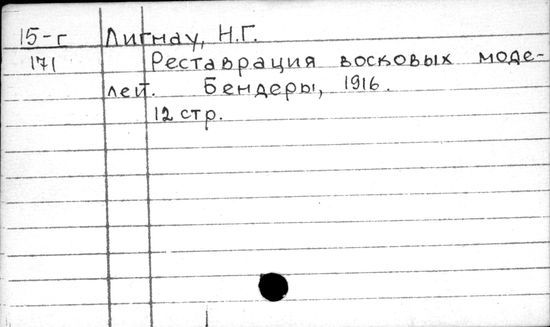 15-г Лигнау, Н.Г.
171 Реставрация восковых моде-
лей. Бендеры, 1916.
12 стр.